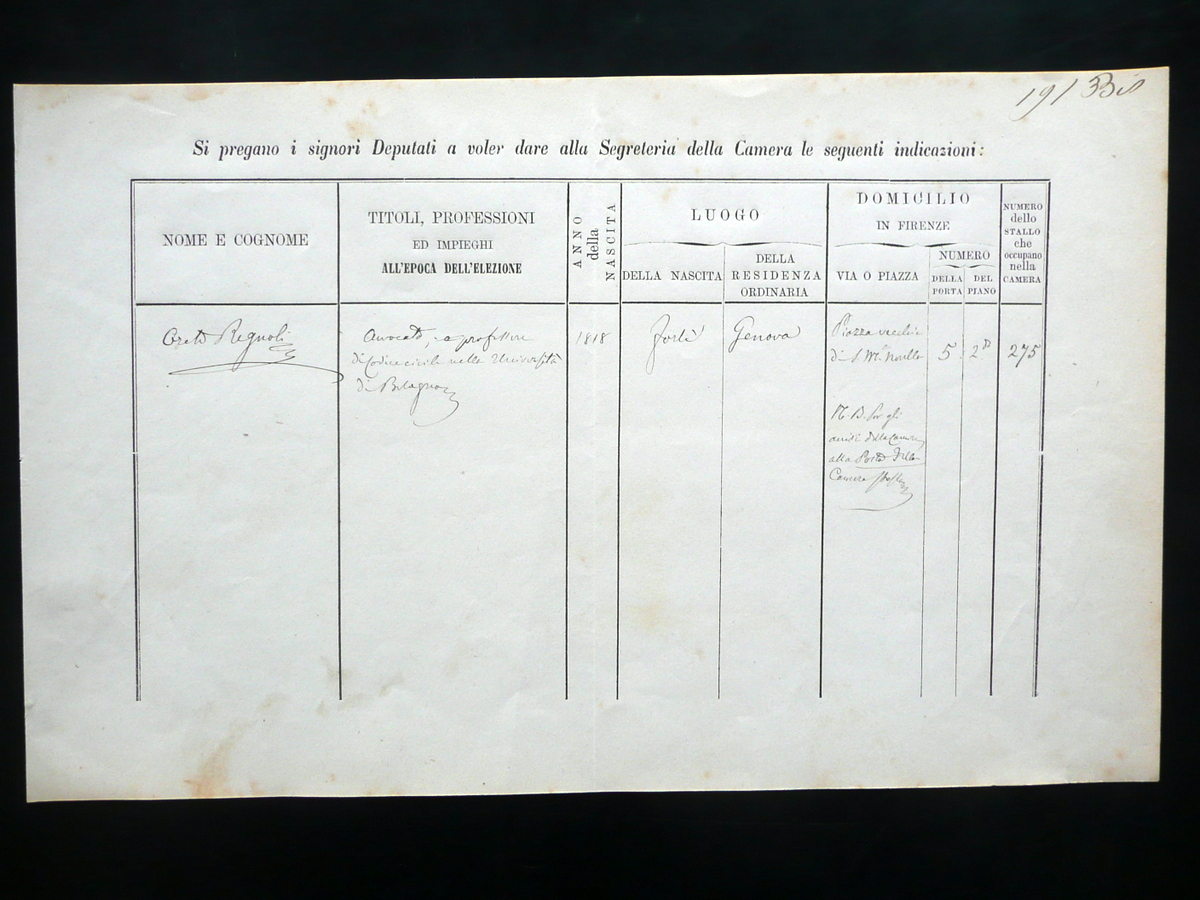 191 Bis
Si pregano i signori Deputati a voler dare alla Segreteria della Camera le seguenti indicazioni:
NOME E COGNOME
TITOLI, PROFESSIONI
ED IMPIEGHI
ALL'EPOCA DELL'ELEZIONE
ANNO
della
NASCITA
LUOGO
DELLA NASCITA
DELLA
RESIDENZA
ORDINARIA
DOMICILIO
IN FIRENZE
VIA O PIAZZA
NUMERO
DELLA
PORTA
DEL
PIANO
NUMERO
dello
STALLO
che
occupano
nella
CAMERA
Oreste Regnoli
Avvocato, e professore
di Codice civile nella Università
di Bologna
1818
Forlì
Genova
Piazza vecchia
di S. Mª Novella
5
2º
275
N.B. Per gli
avvisi della Camera
alla Posta della
Camera stessa